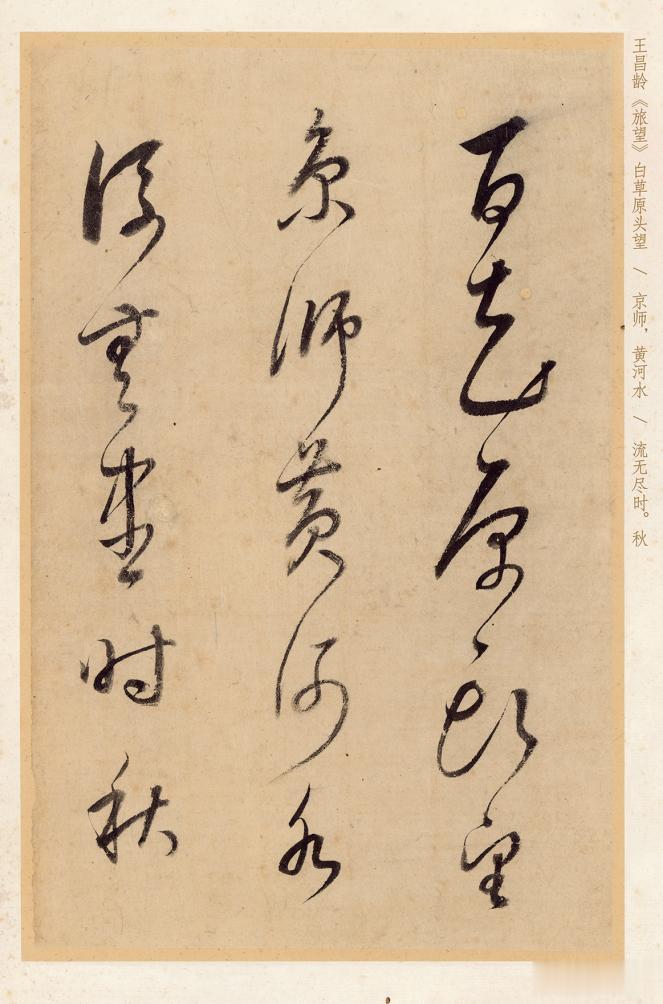 王昌龄《旅望》白草原头望 \ 京师，黄河水 \ 流无尽时。秋
百花原頭望
京師黄河水
流無盡时秋